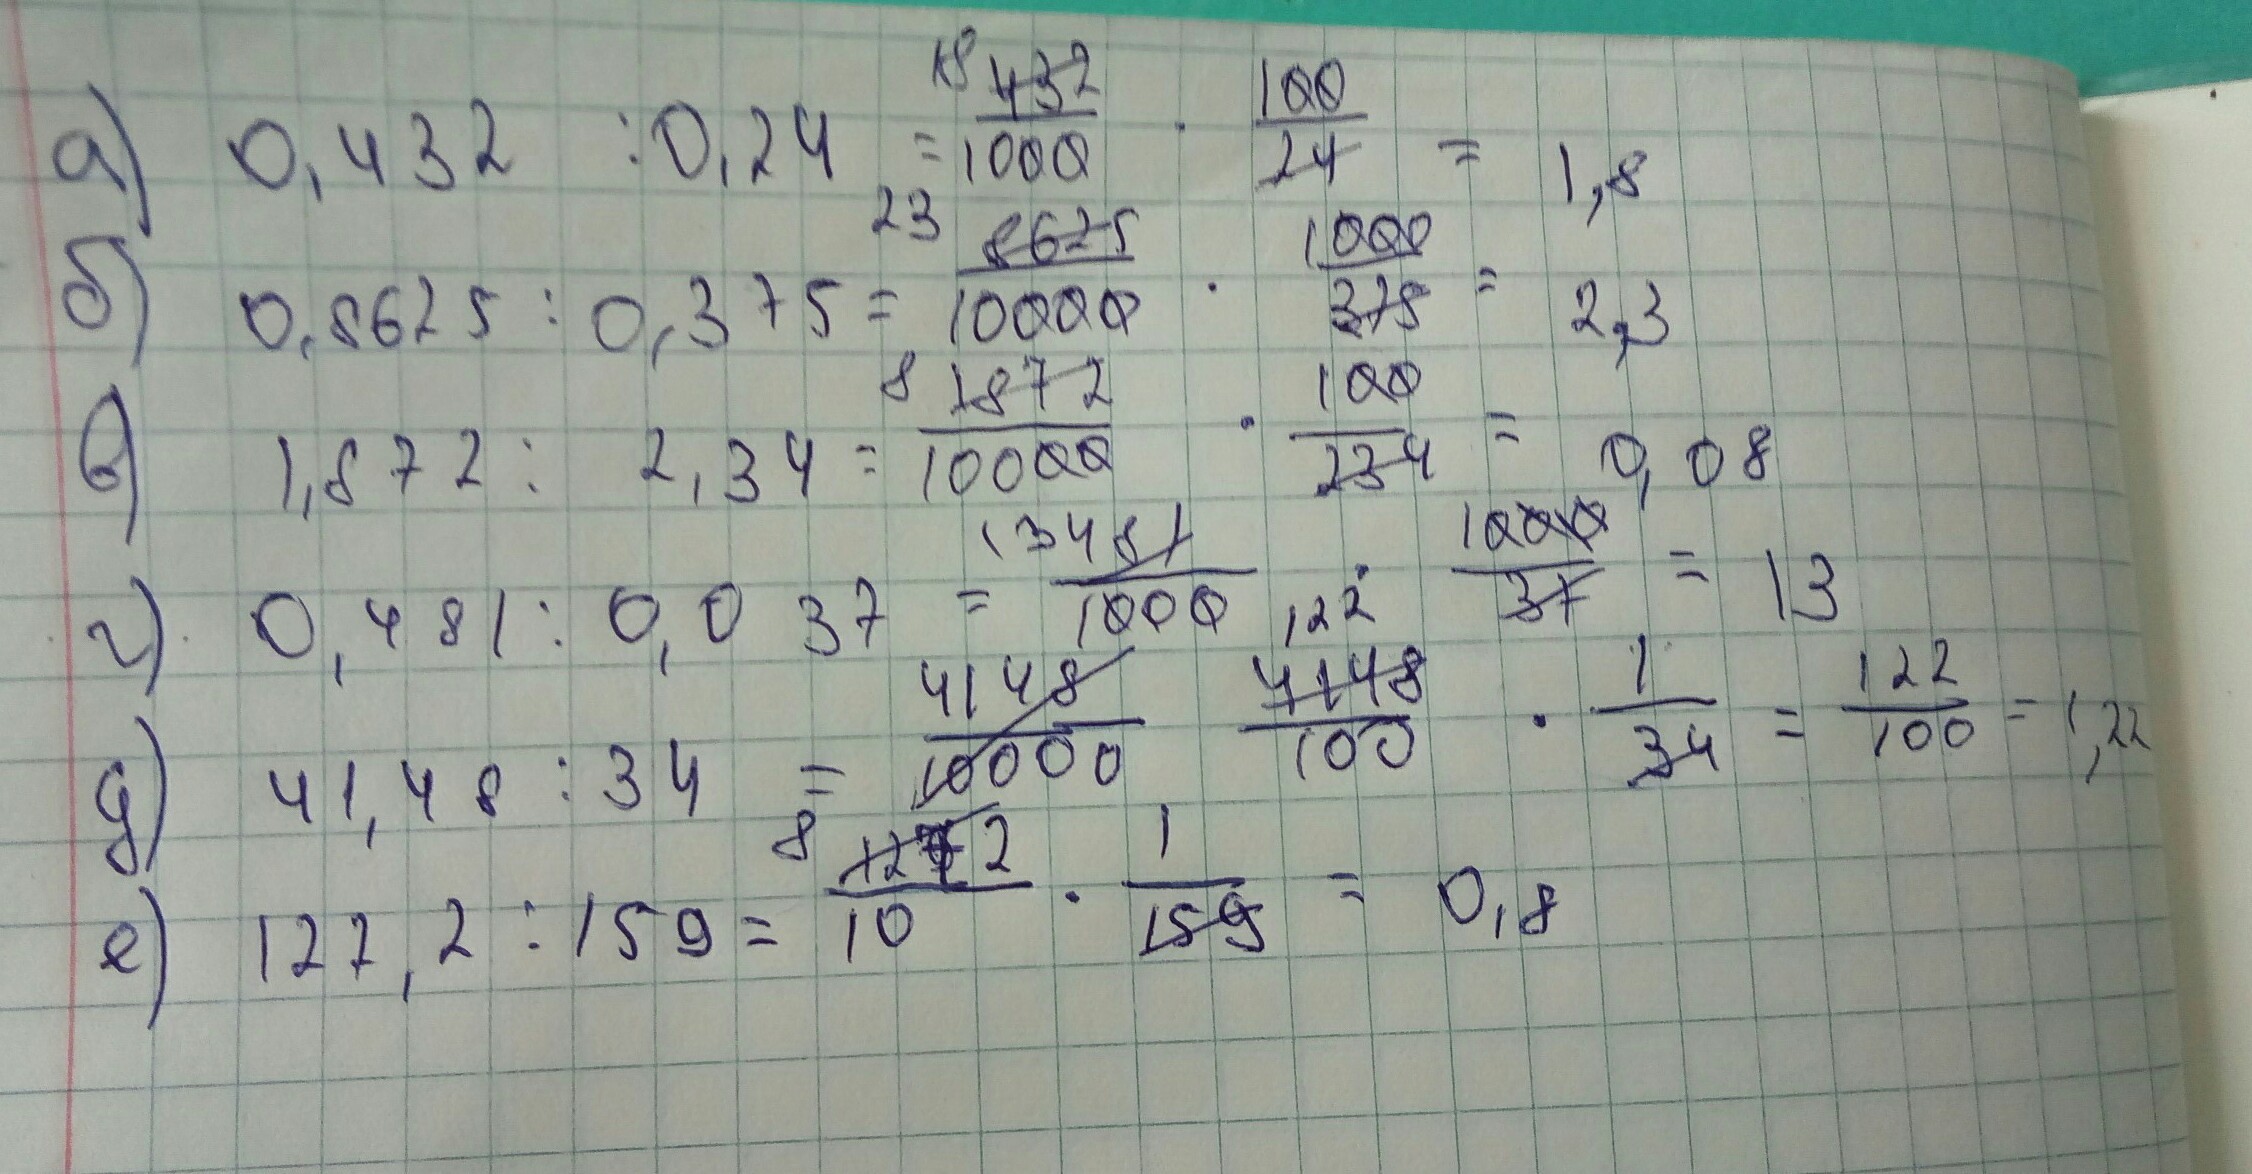 а) 0,432 : 0,24 = 18 432/1000 · 100/24 = 1,8
б) 0,8625 : 0,375 = 23 8625/10000 · 1000/375 = 2,3
в) 1,872 : 2,34 = 8 1872/10000 · 100/234 = 0,08
г) 0,481 : 0,037 = 13 481/1000 · 1000/37 = 13
д) 41,48 : 34 = 4148/10000 122 4148/100 · 1/34 = 122/100 = 1,22
е) 127,2 : 159 = 8 1272/10 · 1/159 = 0,8